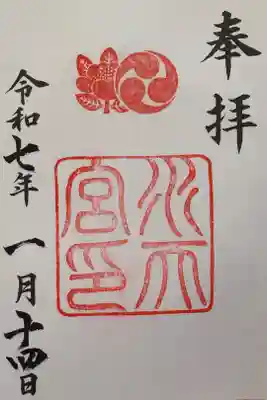 奉拝
水天
宮印
令和七年 一月十四日